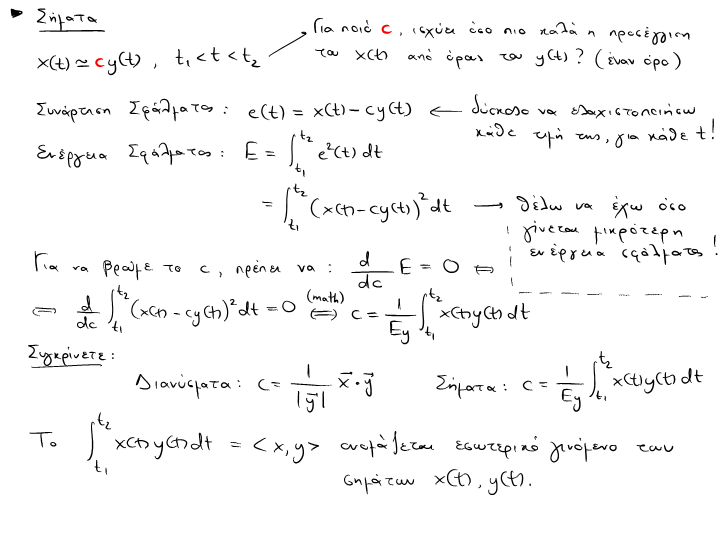 ► Σήματα
x(t) ≃ c y(t) , t₁ < t < t₂
Για ποιό c , ισχύει όσο πιο καλά η προσέγγιση
του x(t) από όρους του y(t) ? (έναν όρο)
Συνάρτηση Σφάλματος : e(t) = x(t) - c y(t) ← δύσκολο να ελαχιστοποιήσω
κάθε τιμή της, για κάθε t !
Ενέργεια Σφάλματος : E = ∫_{t₁}^{t₂} e²(t) dt
= ∫_{t₁}^{t₂} (x(t) - c y(t))² dt → θέλω να έχω όσο
γίνεται μικρότερη
ενέργεια σφάλματος !
Για να βρούμε το c , πρέπει να : d/dc E = 0 ⇔
⇔ d/dc ∫_{t₁}^{t₂} (x(t) - c y(t))² dt = 0 (math) ⇔ c = 1/E_y ∫_{t₁}^{t₂} x(t) y(t) dt
Συγκρίνετε :
Διανύσματα : c = 1/|y⃗| x⃗ · y⃗ Σήματα : c = 1/E_y ∫_{t₁}^{t₂} x(t) y(t) dt
Το ∫_{t₁}^{t₂} x(t) y(t) dt = < x, y > ονομάζεται εσωτερικό γινόμενο των
σημάτων x(t) , y(t).